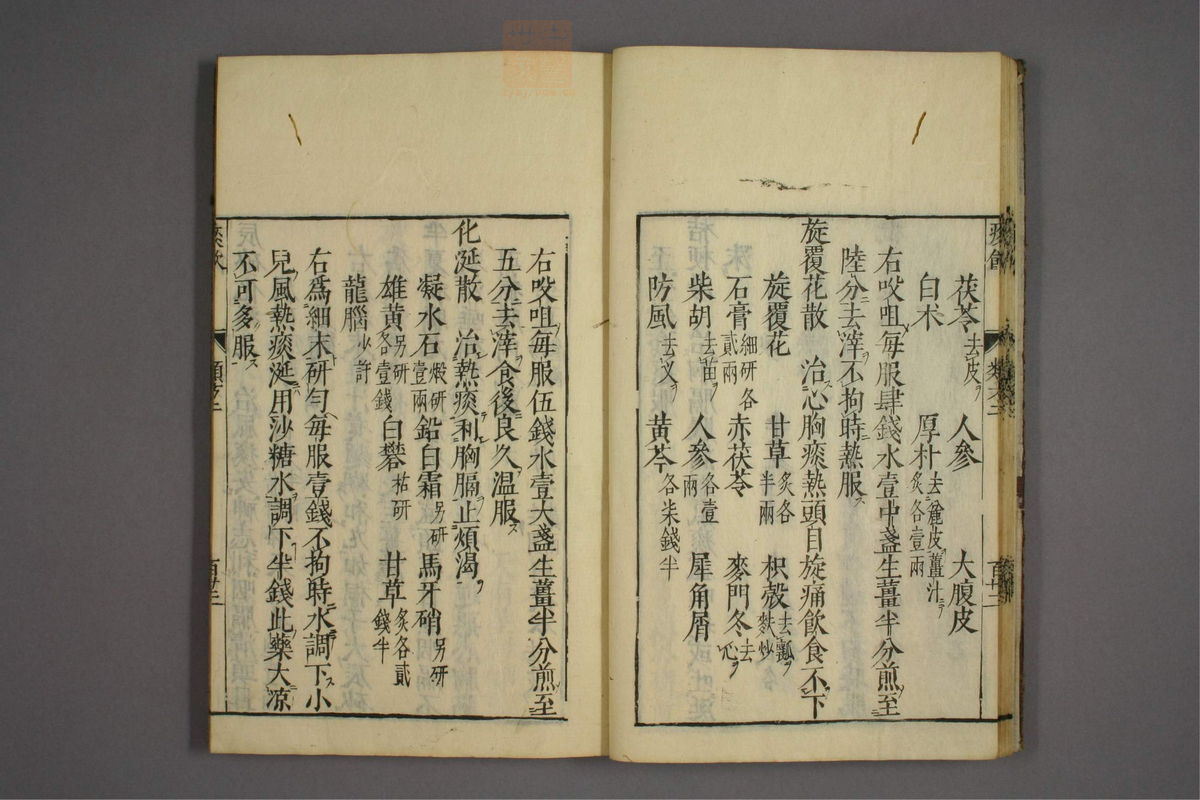 茯苓去皮 人參 大腹皮
白朮 厚朴去麄皮薑汁炙各壹兩
右㕮咀每服肆錢水壹中盞生薑半分煎至
陸分去滓不拘時熱服
旋覆花散 治心胸痰熱頭目旋痛飲食不下
旋覆花 甘草炙各半兩 枳殼去瓤麩炒
石膏細研各貳兩 赤茯苓 麥門冬去心
柴胡去苗 人參各壹兩 犀角屑
防風去叉 黃芩各柒錢半
右㕮咀每服伍錢水壹大盞生薑半分煎至
五分去滓食後良久溫服
化涎散 治熱痰利胸膈止煩渴
凝水石煅研壹兩 鉛白霜另研 馬牙硝另研
雄黃另研各壹錢 白礬枯研 甘草炙各貳錢半
龍腦少許
右爲細末研勻每服壹錢不拘時水調下小
兒風熱痰涎用沙糖水調下半錢此藥大凉
不可多服